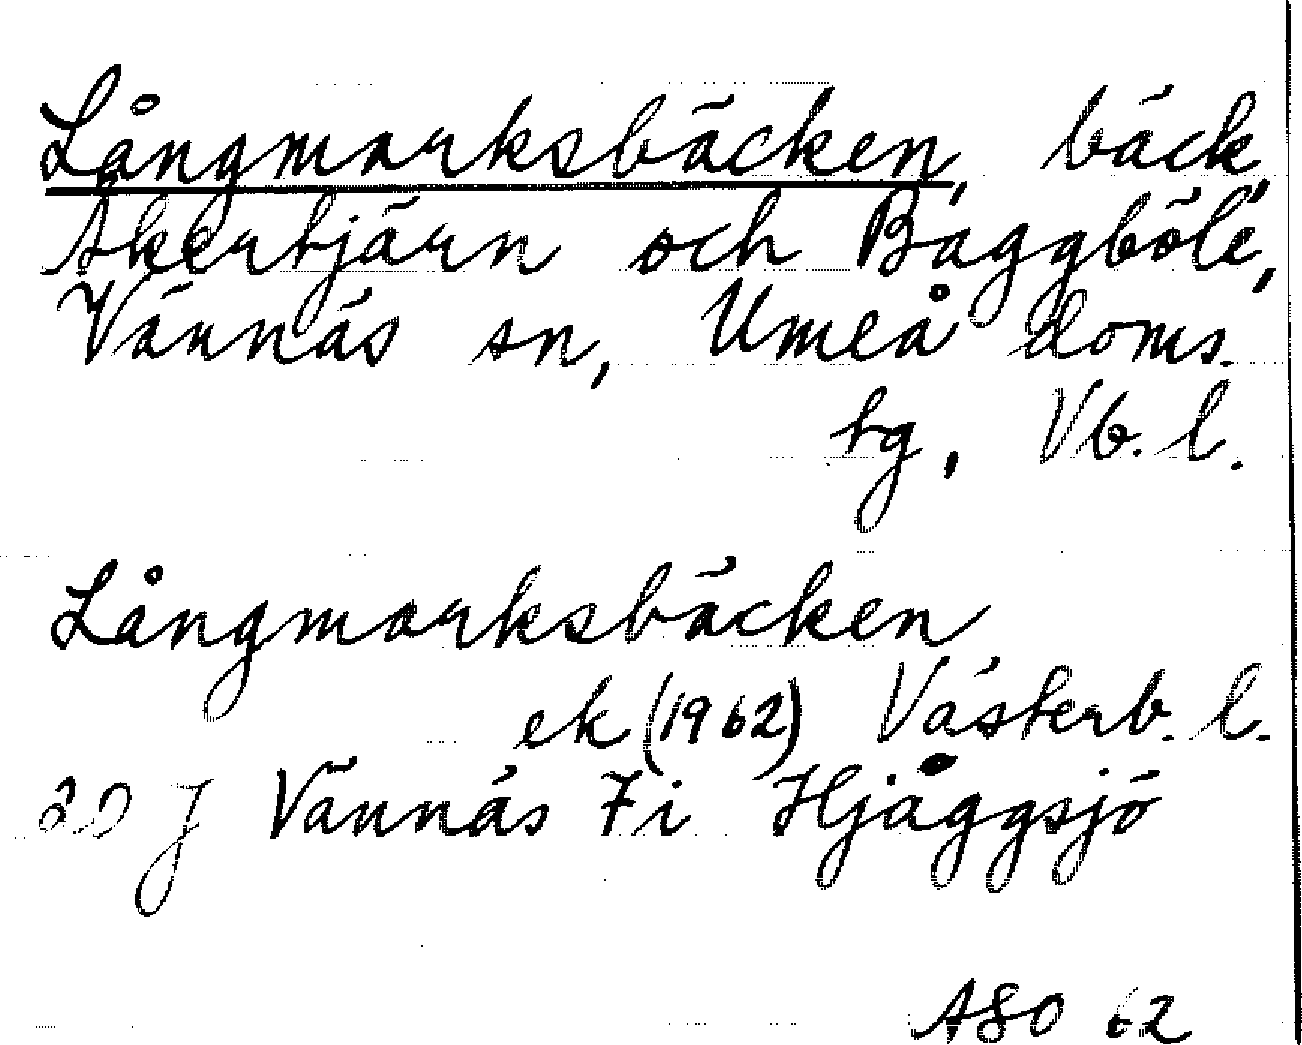 Långmarksbäcken, bäck,
Åkertjärn och Baggböle,
Vännäs sn, Umeå doms.
tg, Vb. l.
Långmarksbäcken
ek (1962) Västerb. l.
20 J Vännäs 7i Hjåggsjö
ASO 62